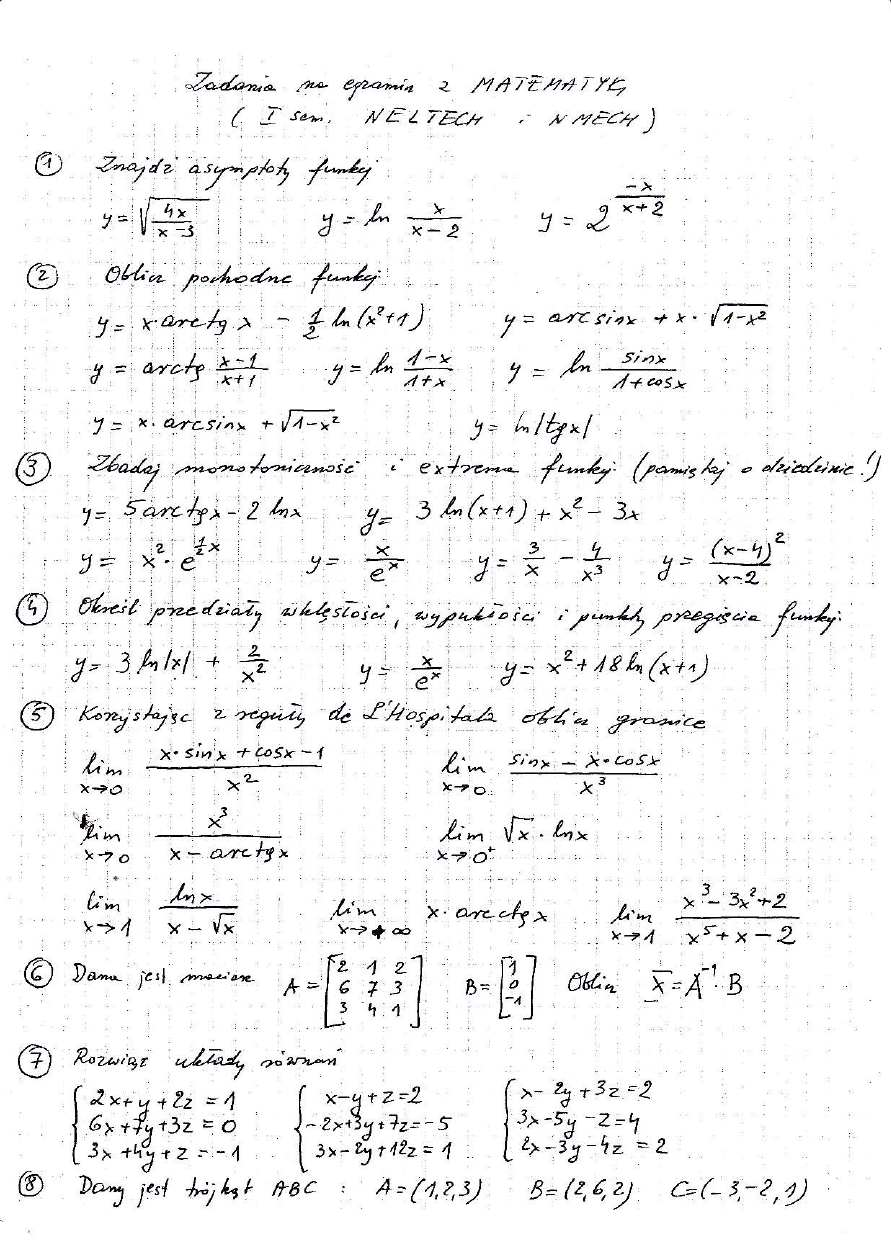 Zadania na egzamin z MATEMATYKI
( I sem. NELTECH i NMECH )
① Znajdź asymptoty funkcji
y = √(4x/(x-3))   y = ln x/(x-2)   y = 2^(-x/(x+2))
② Oblicz pochodne funkcji
y = x·arctg x - 1/2 ln(x²+1)   y = arcsinx + x·√(1-x²)
y = arctg (x-1)/(x+1)   y = ln (1-x)/(1+x)   y = ln sinx/(1+cosx)
y = x·arcsinx + √(1-x²)   y = ln|tgx|
③ Zbadaj monotoniczność i extrema funkcji (pamiętaj o dziedzinie!)
y = 5arctgx - 2 lnx   y = 3 ln(x+1) + x² - 3x
y = x²·e^(1/2 x)   y = x/e^x   y = 3/x - 4/x³   y = (x-4)²/(x-2)
④ Określ przedziały wklęsłości, wypukłości i punkty przegięcia funkcji.
y = 3 ln|x| + 2/x²   y = x/e^x   y = x² + 18 ln(x+1)
⑤ Korzystając z reguły de L'Hospitala oblicz granice
lim x→0 (x·sinx + cosx - 1)/x²   lim x→0 (sinx - x·cosx)/x³
lim x→0 x³/(x - arctgx)   lim x→0⁺ √x · lnx
lim x→1 lnx/(x - √x)   lim x→+∞ x·arcctgx   lim x→1 (x³-3x²+2)/(x⁵+x-2)
⑥ Dana jest macierz A = [2 1 2; 6 7 3; 3 4 1]   B = [1; 0; -1]   Oblicz X = A⁻¹·B
⑦ Rozwiąż układy równań
2x+y+2z=1   x-y+z=2   x-2y+3z=2
6x+7y+3z=0   -2x+3y+7z=-5   3x-5y-z=4
3x+4y+z=-1   3x-2y+12z=1   2x-3y-4z=2
⑧ Dany jest trójkąt ABC : A=(1,2,3)   B=(2,6,2)   C=(-3,-2,1)